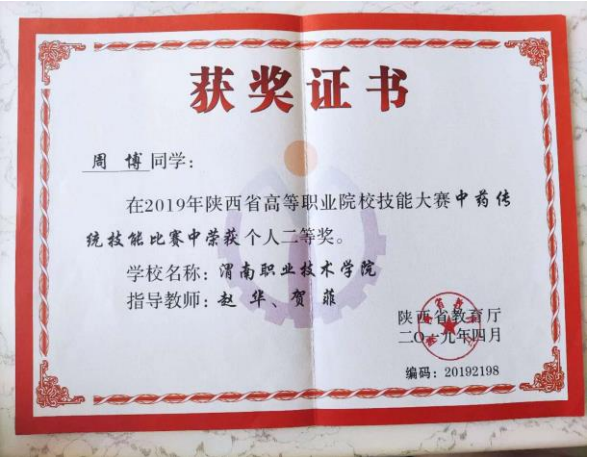 获奖证书
周博同学：
在2019年陕西省高等职业院校技能大赛中药传
统技能比赛中荣获个人二等奖。
学校名称：渭南职业技术学院
指导教师：赵华、贺菲
陕西省教育厅
二〇一九年四月
编码：20192198